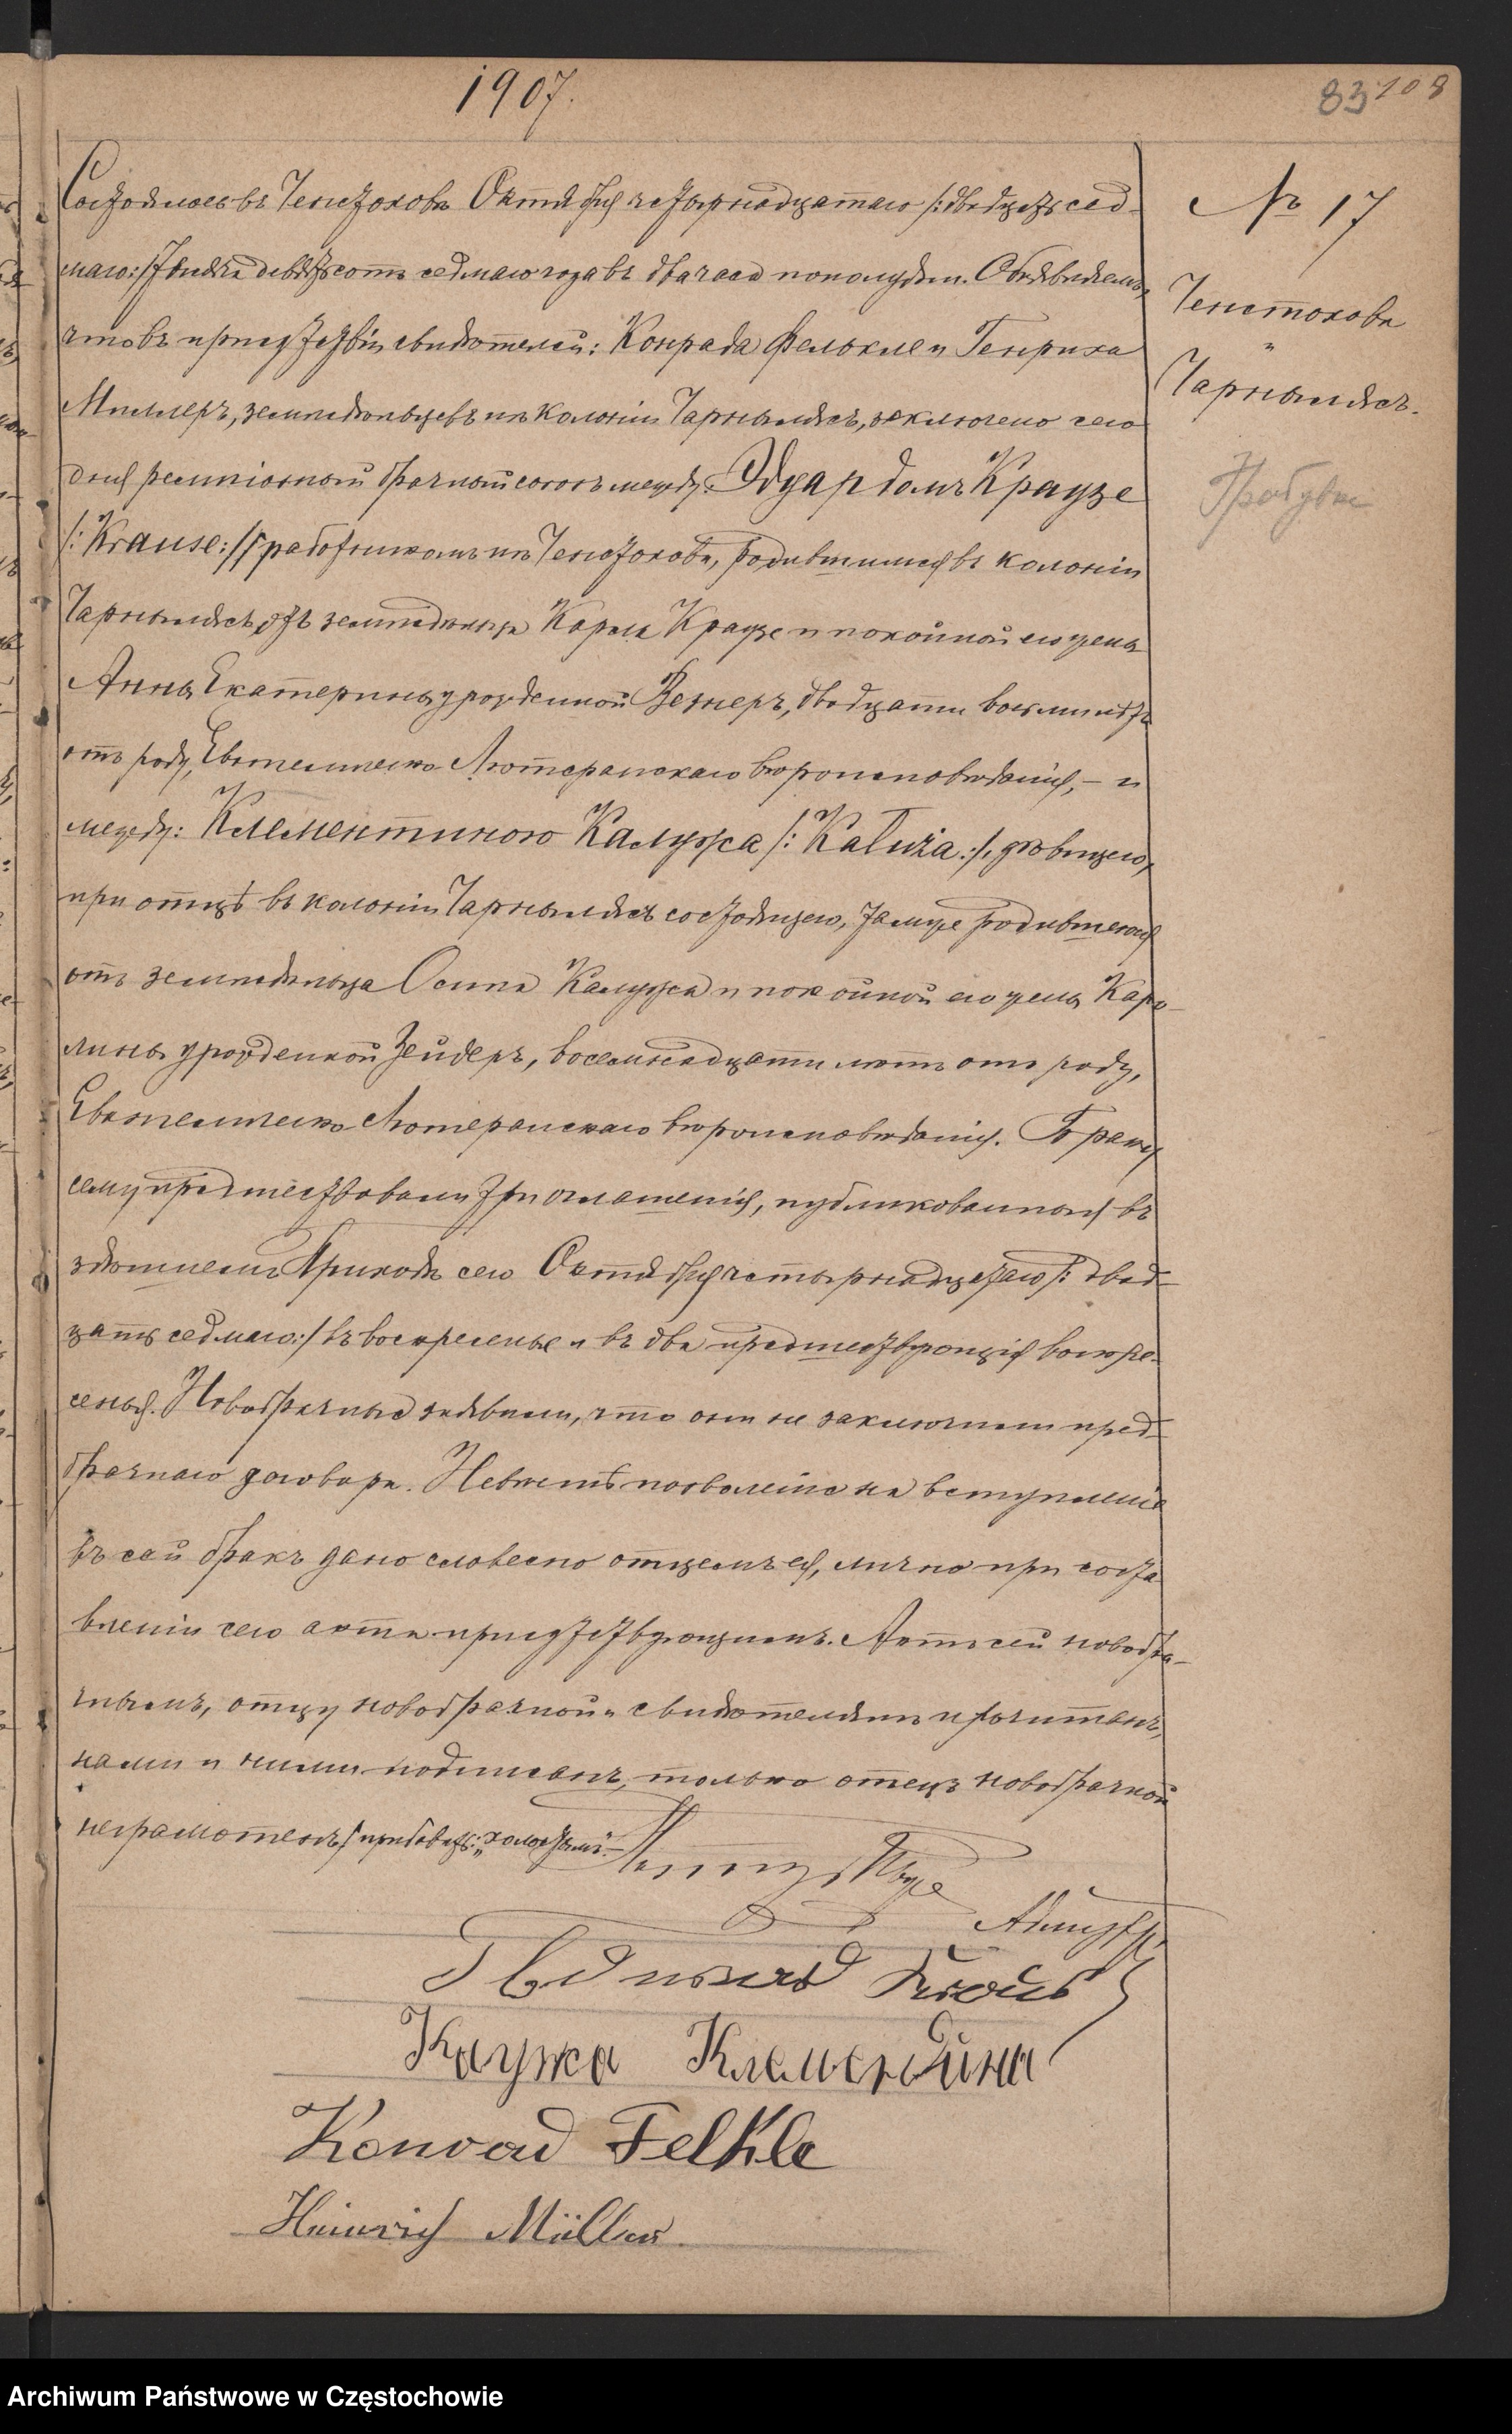 1907.
83 108
Состоялось въ Ченстоховѣ Октября четырнадцатаго /: двадцать сед-
маго :/ тысяча девятьсотъ седмаго года въ два часа пополудни. Объявляемъ,
что въ присутствіи свидѣтелей: Конрада Фелькле и Генриха
Миллеръ, земледѣльцевъ изъ колоніи Чарнылясъ, заключено сего
дня религіозный брачный союзъ между: Эдуардомъ Краузе
/: Krause :/ работникомъ изъ Ченстоховы, родившимся въ колоніи
Чарнылясъ, отъ земледѣльца Карла Краузе и покойной его жены
Анны Екатерины урожденной Везнеръ, двадцати восьми лѣтъ
отъ роду, Евангелическо-Лютеранскаго вѣроисповѣданія, – и
между: Клементиною Калужа /: Kałuża :/, дѣвицею,
при отцѣ въ колоніи Чарнылясъ состоящею, тамже родившеюся
отъ земледѣльца Осипа Калужа и покойной его жены Каро-
лины урожденной Зейдеръ, восемнадцати лѣтъ отъ роду,
Евангелическо-Лютеранскаго вѣроисповѣданія. Браку
сему предшествовали три оглашенія, публикованныя въ
здѣшнемъ Приходѣ сего Октября четырнадцатаго /: двад-
цать седмаго :/ въ воскресенье и въ два предшествующія воскре-
сенья. Новобрачные заявили, что они не заключили пред-
брачнаго договора. Невѣстѣ позволеніе на вступленіе
въ сей бракъ дано словесно отцемъ ея, лично при соста
вленіи сего акта присутствующимъ. Актъ сей новобра-
чнымъ, отцу новобрачной и свидѣтелямъ прочитанъ,
нами и ними подписанъ, только отецъ новобрачной
неграмотенъ / прибавить: „холостымъ“. –
Eduard Kraus
Каужа Клементина
Konrad Felkle
Heinrich Müller
№ 17
Ченстохова
"
Чарнылясъ.